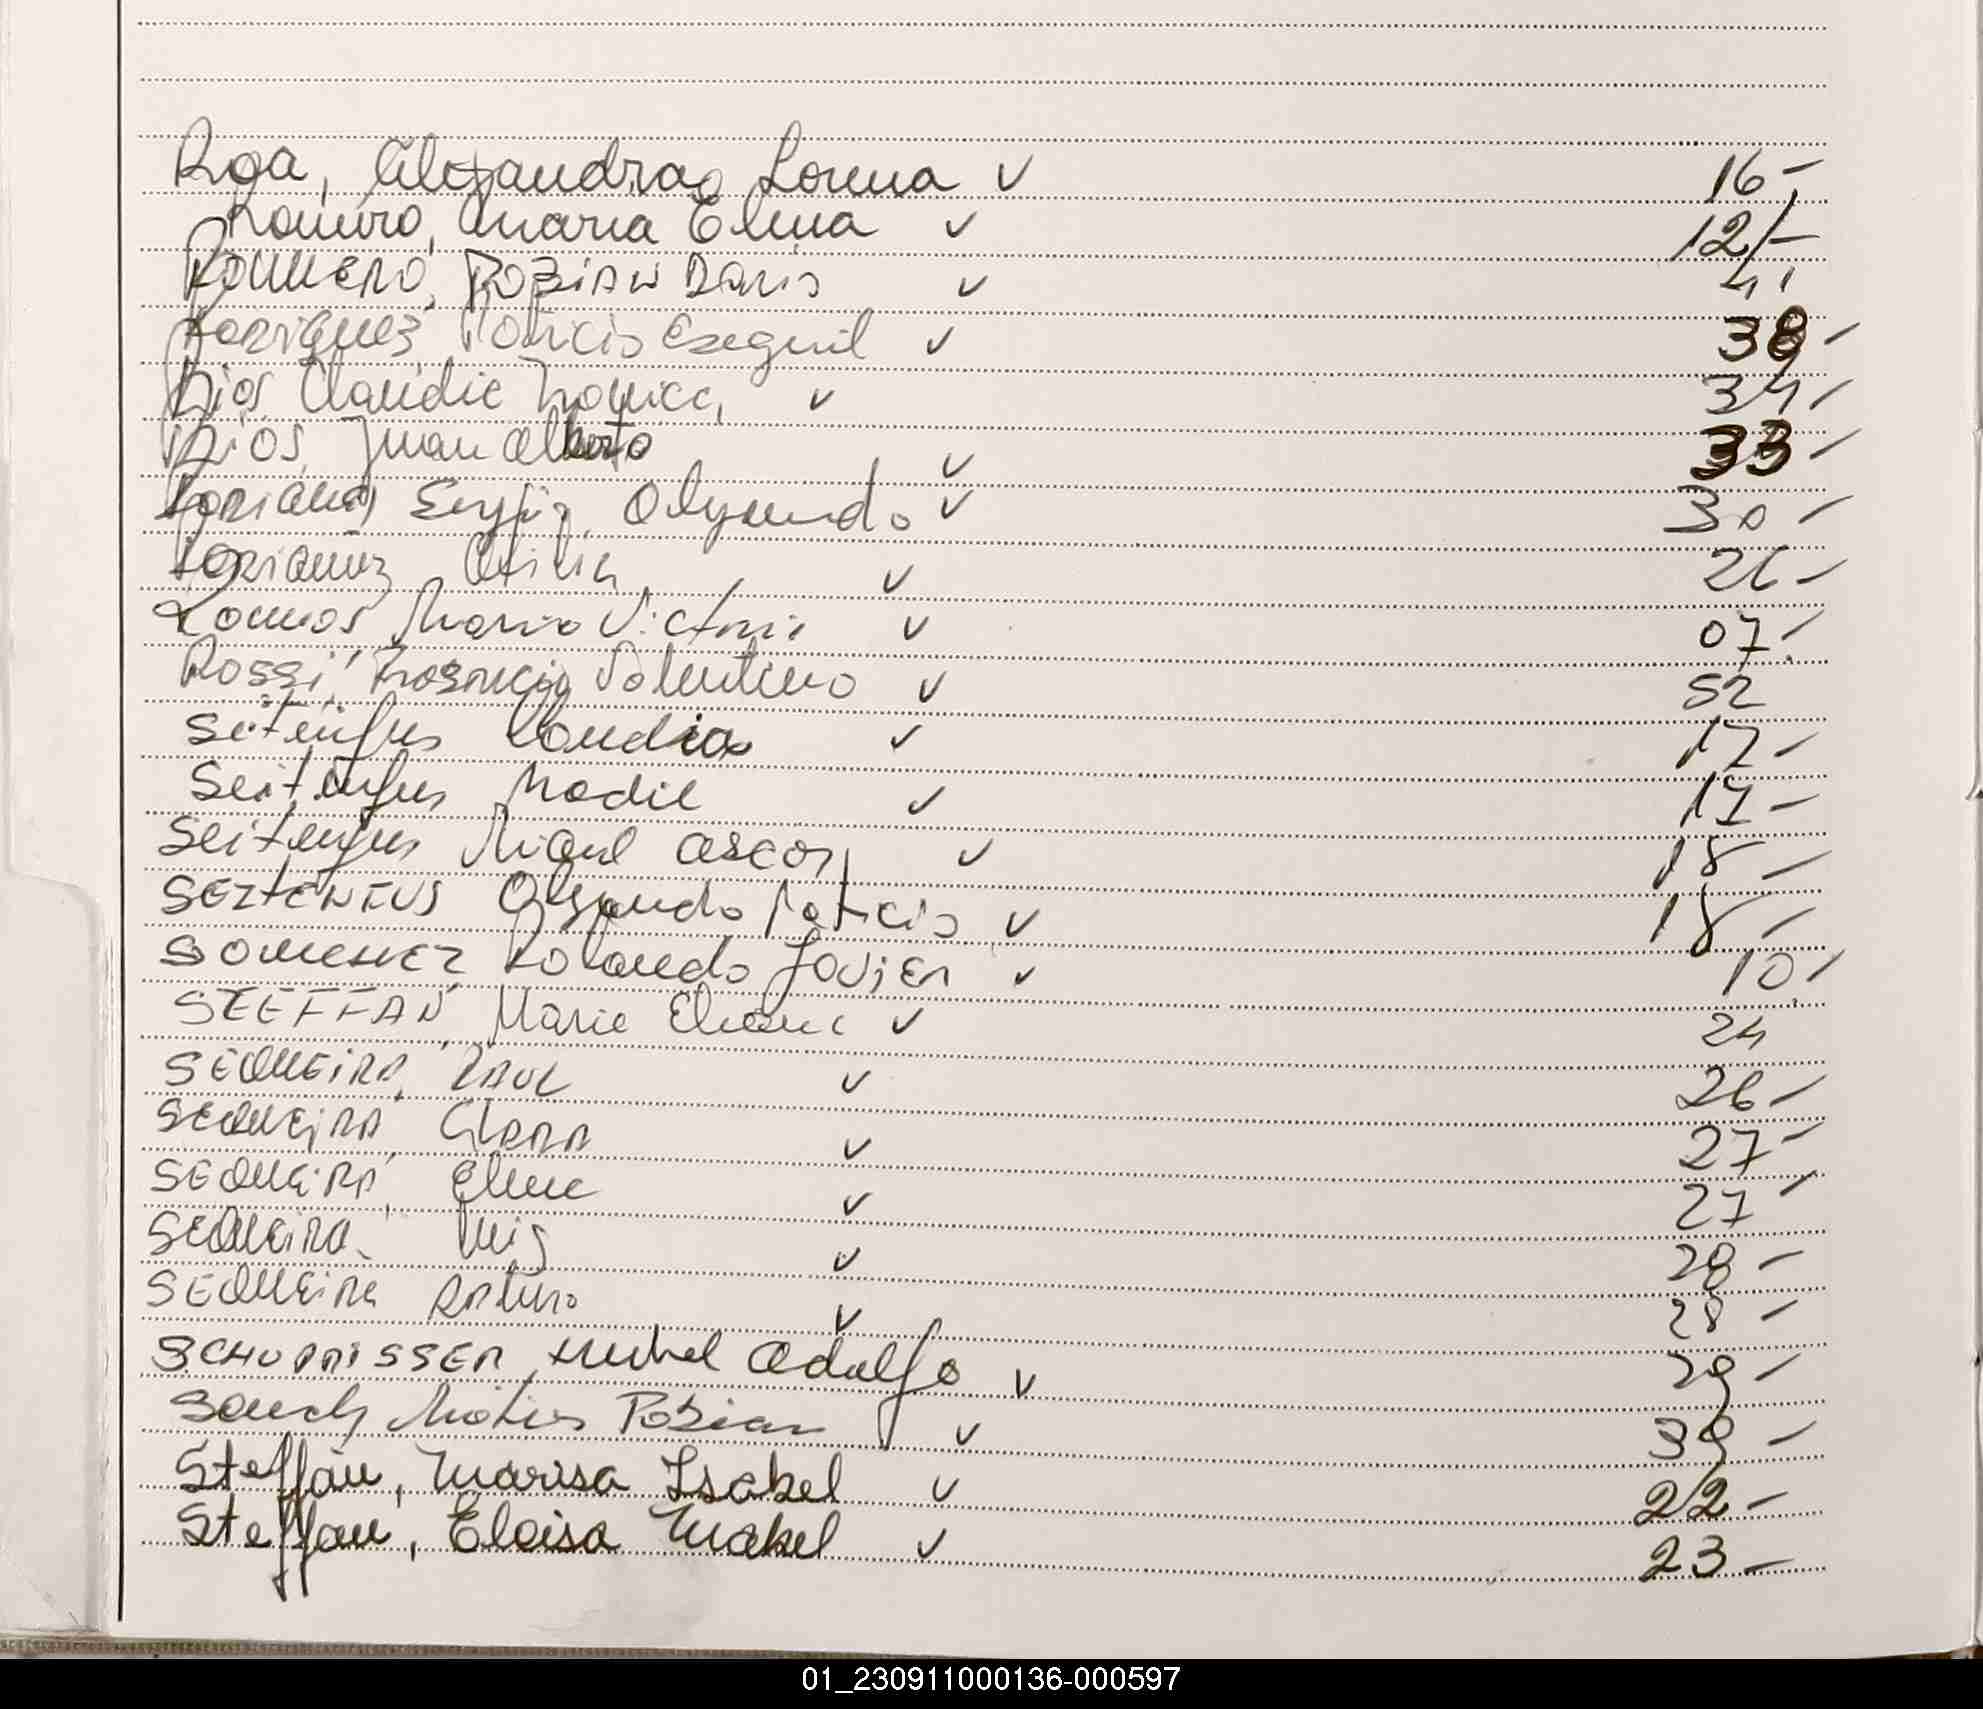 Roa, Alejandra Lorena ✓ 16-
Romero, Maria Elena ✓ 12/-
ROMERO, FABIAN DARIO ✓ 41
Rodriguez Patricio Ezequiel ✓ 38-
Rios Claudia Monica, ✓ 34-
Rios, Juan Alberto ✓ 33-
Rodriguez Olegundo ✓ 30-
Rodriguez Otilia ✓ 26-
Ramos Maria Victoria ✓ 07-
Rossi, Valentino ✓ 52
Seitenfus Claudia ✓ 17-
Seitenfus Nadie ✓ 17-
Seitenfus Miguel Oscar ✓ 18-
SEITENFUS Patricio ✓ 18-
Rolando Javier ✓ 10-
STEFFAN, Maria Eliana ✓ 24
SEQUEIRA, RAUL ✓ 26-
SEQUEIRA, CLARA ✓ 27-
SEQUEIRA, Elena ✓ 27-
SEQUEIRA, Luis ✓ 28-
SEQUEIRA Arturo ✓ 28-
Adolfo ✓ 29-
Matias Fabian ✓ 39-
Steffan, Marisa Isabel ✓ 22-
Steffan, Eloisa Mabel ✓ 23-
01_230911000136-000597